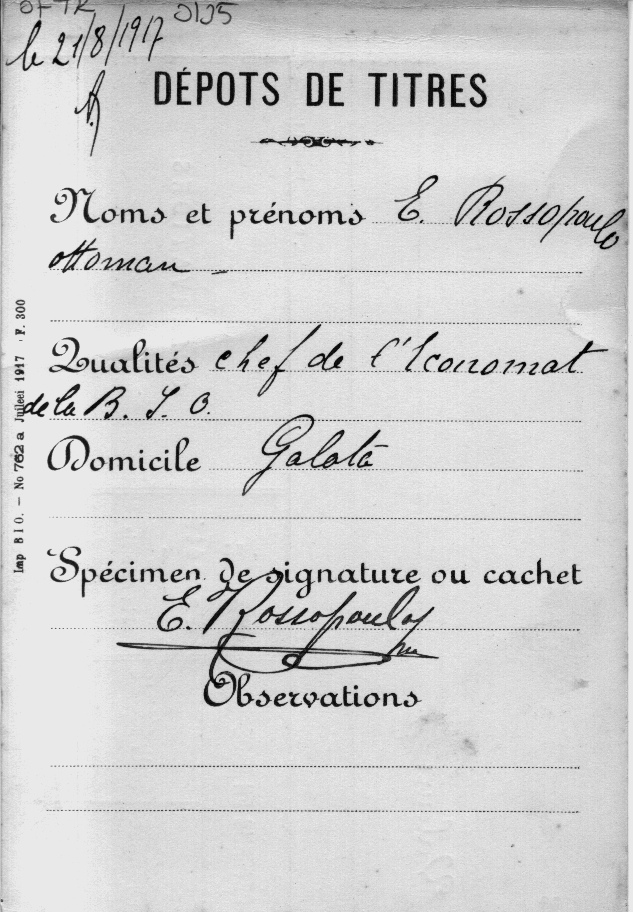 5125
le 21/8/1917
DÉPOTS DE TITRES
Noms et prénoms E. Rossopoulo
ottoman
Qualités chef de l'Economat
de la B. I. O.
Domicile Galata
Spécimen de signature ou cachet
E. Rossopoulos
Observations
Imp B I O. — No 762 a Juilcei 1917 · F. 300